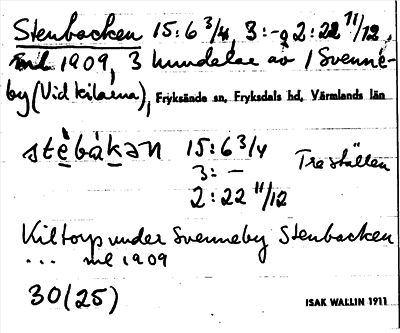 Stenbacken 15:6 3/4, 3:- o 2:22 11/12,
ml 1909, 3 hundelar av 1 Svenne-
by (Vid kilarna), Fryksände sn, Fryksdals hd, Värmlands län
stèbákan 15:6 3/4 Tre ställen
3: -
2:22 11/12
Kiltorp under Svenneby Stenbacken
... ml 1909
30 (25)
ISAK WALLIN 1911